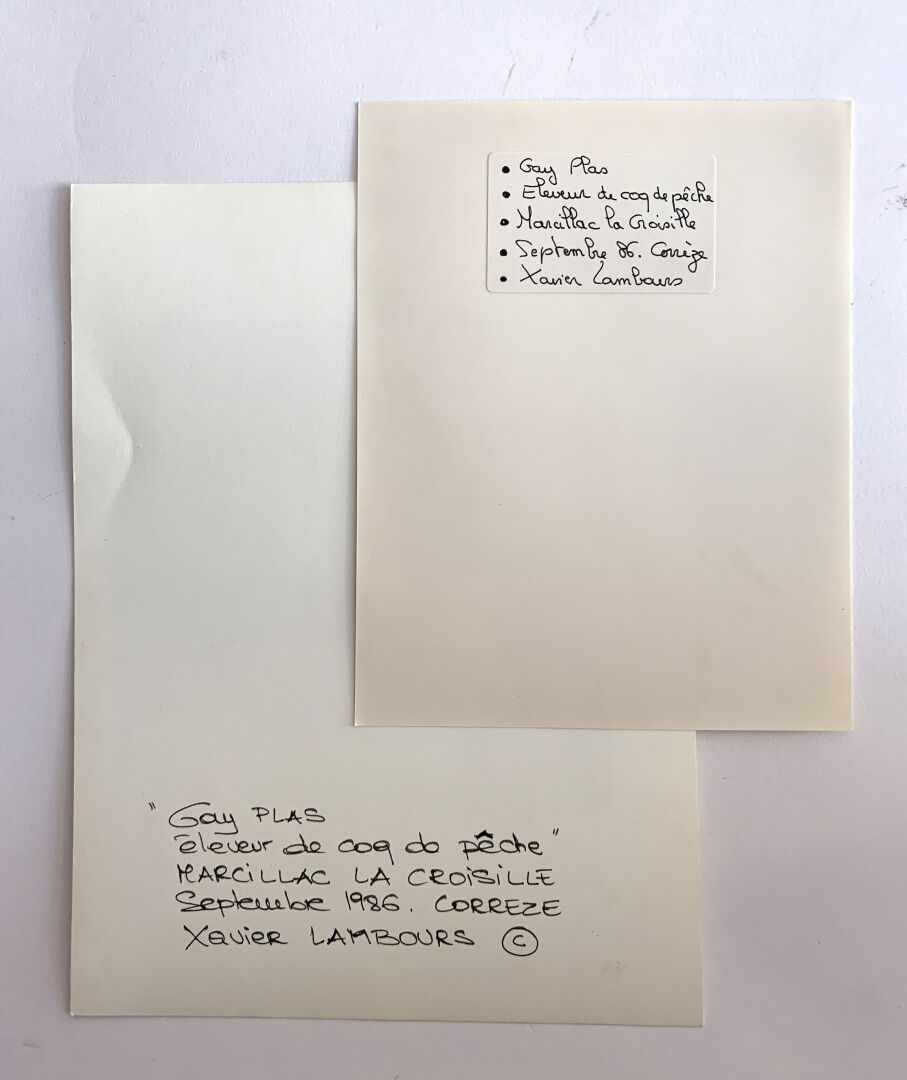 • Gay Plas
• Eleveur de coq de pêche
• Marcillac la Croisille
• Septembre 86. Corrèze
• Xavier Lambours
" Gay PLAS
éleveur de coq de pêche "
MARCILLAC LA CROISILLE
Septembre 1986. CORREZE
Xavier LAMBOURS ©